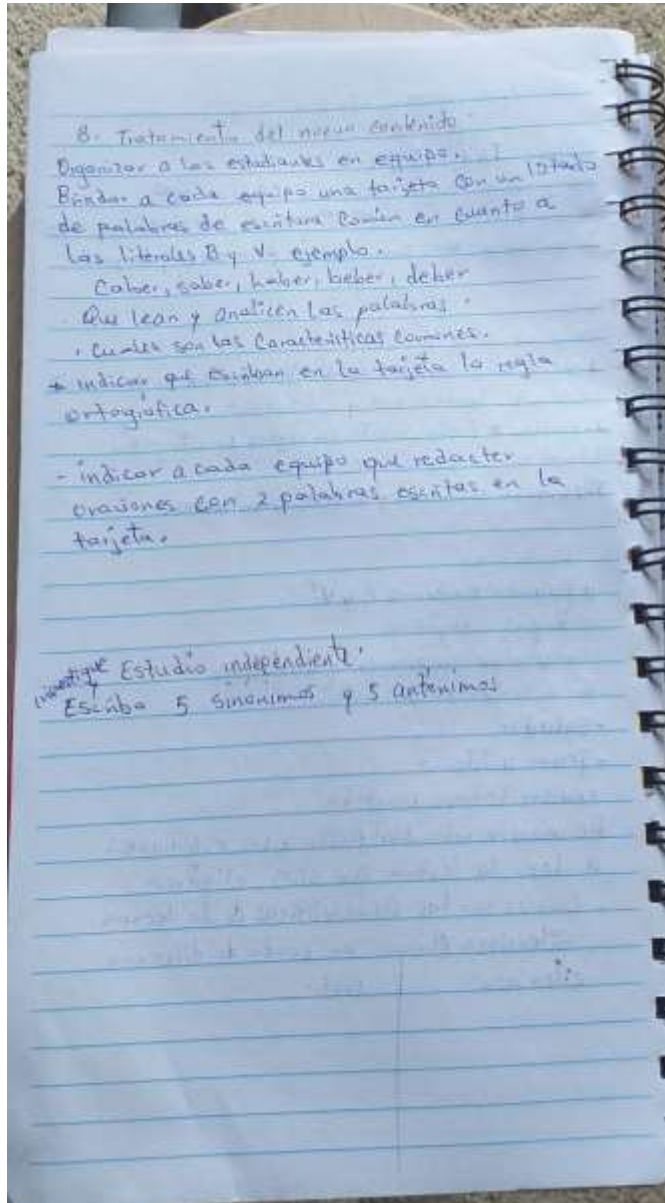 8. Tratamiento del nuevo contenido
Organizar a los estudiantes en equipo.
Brindar a cada equipo una tarjeta con un listado
de palabras de escritura común en cuanto a
las literales B y V. ejemplo.
Caber, saber, haber, beber, deber
. Que lean y analicen las palabras.
. Cuales son las características comunes.
* indicar que escriban en la tarjeta la regla
ortográfica.
- indicar a cada equipo que redacten
oraciones con 2 palabras escritas en la
tarjeta.
Estudio independiente.
investigue
Escriba 5 sinónimos y 5 antónimos